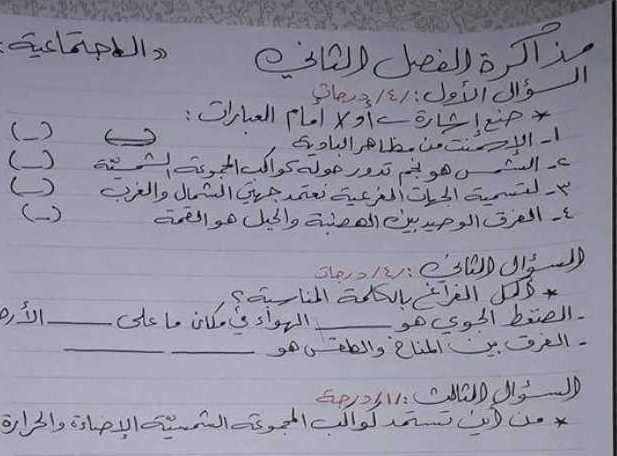 مذاكرة الفصل الثاني « الاجتماعية:
السؤال الأول: /٤/ درجات
* ضع إشارة ✓ أو X أمام العبارات:
١- الإسمنت من مظاهر البادية (ـ)
٢- الشمس هو نجم تدور حوله كواكب المجموعة الشمسيّة (ـ)
٣- لتسمية الجهات الفرعية نعتمد جهتي الشمال والغرب (ـ)
٤- الفرق الوحيد بين الهضبة والجبل هو القمة (ـ)
السؤال الثاني: /٤/ درجات
* أكمل الفراغ بالكلمة المناسبة؟
- الضغط الجوي هو ____ الهواء في مكان ما على ____ الأرض
- الفرق بين المناخ والطقس هو ____ ____
السؤال الثالث: /١/ درجة
* من أين تستمد كواكب المجموعة الشمسيّة الإضاءة والحرارة